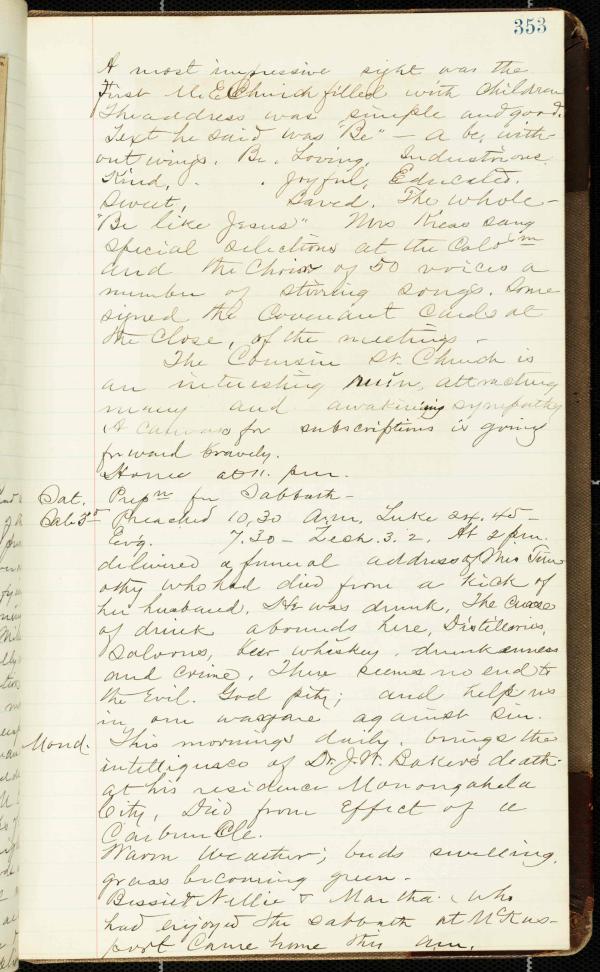 353
A most impressive sight was the
First M.E. Church filled with Children
The address was simple and good.
Text he said was "Be" – A be, with-
out wings. Be, Loving, Industrious,
Kind, . . Joyful, Educated.
Sweet, Saved. The whole –
"Be like Jesus" Mrs Kress sang
special selections at the
and the Choir of 50 voices a
number of stirring songs. Some
signed the Covenant Cards at
the close, of the meetings –
The St. Church is
an interesting ruin, attracting
many and awakening sympathy
A canvas for subscriptions is going
forward bravely.
Home at 11. p.m.
Sat. Prepn for Sabbath –
Sab Preached 10,30 A.M. Luke 24. 45 –
Ev'g. 7.30 – Zech. 3. 2. At 2 p.m.
delivered a funeral address of Mrs Tim
othy who had died from a kick of
her husband. He was drunk. The curse
of drink abounds here, Distilleries,
Saloons, beer whiskey, drunkenness
and crime. There seems no end to
the Evil. God pity; and help us
in our warfare against sin.
Mond. This mornings daily. brings the
intelligence of Dr. J.W. Baker's death
at his residence Monongahela
City, Died from Effect of a
Carbuncle.
Warm Weather; buds swelling.
grass becoming green.
Nellie & Martha. who
had enjoyed the sabbath at McKees-
port Came home this a.m.